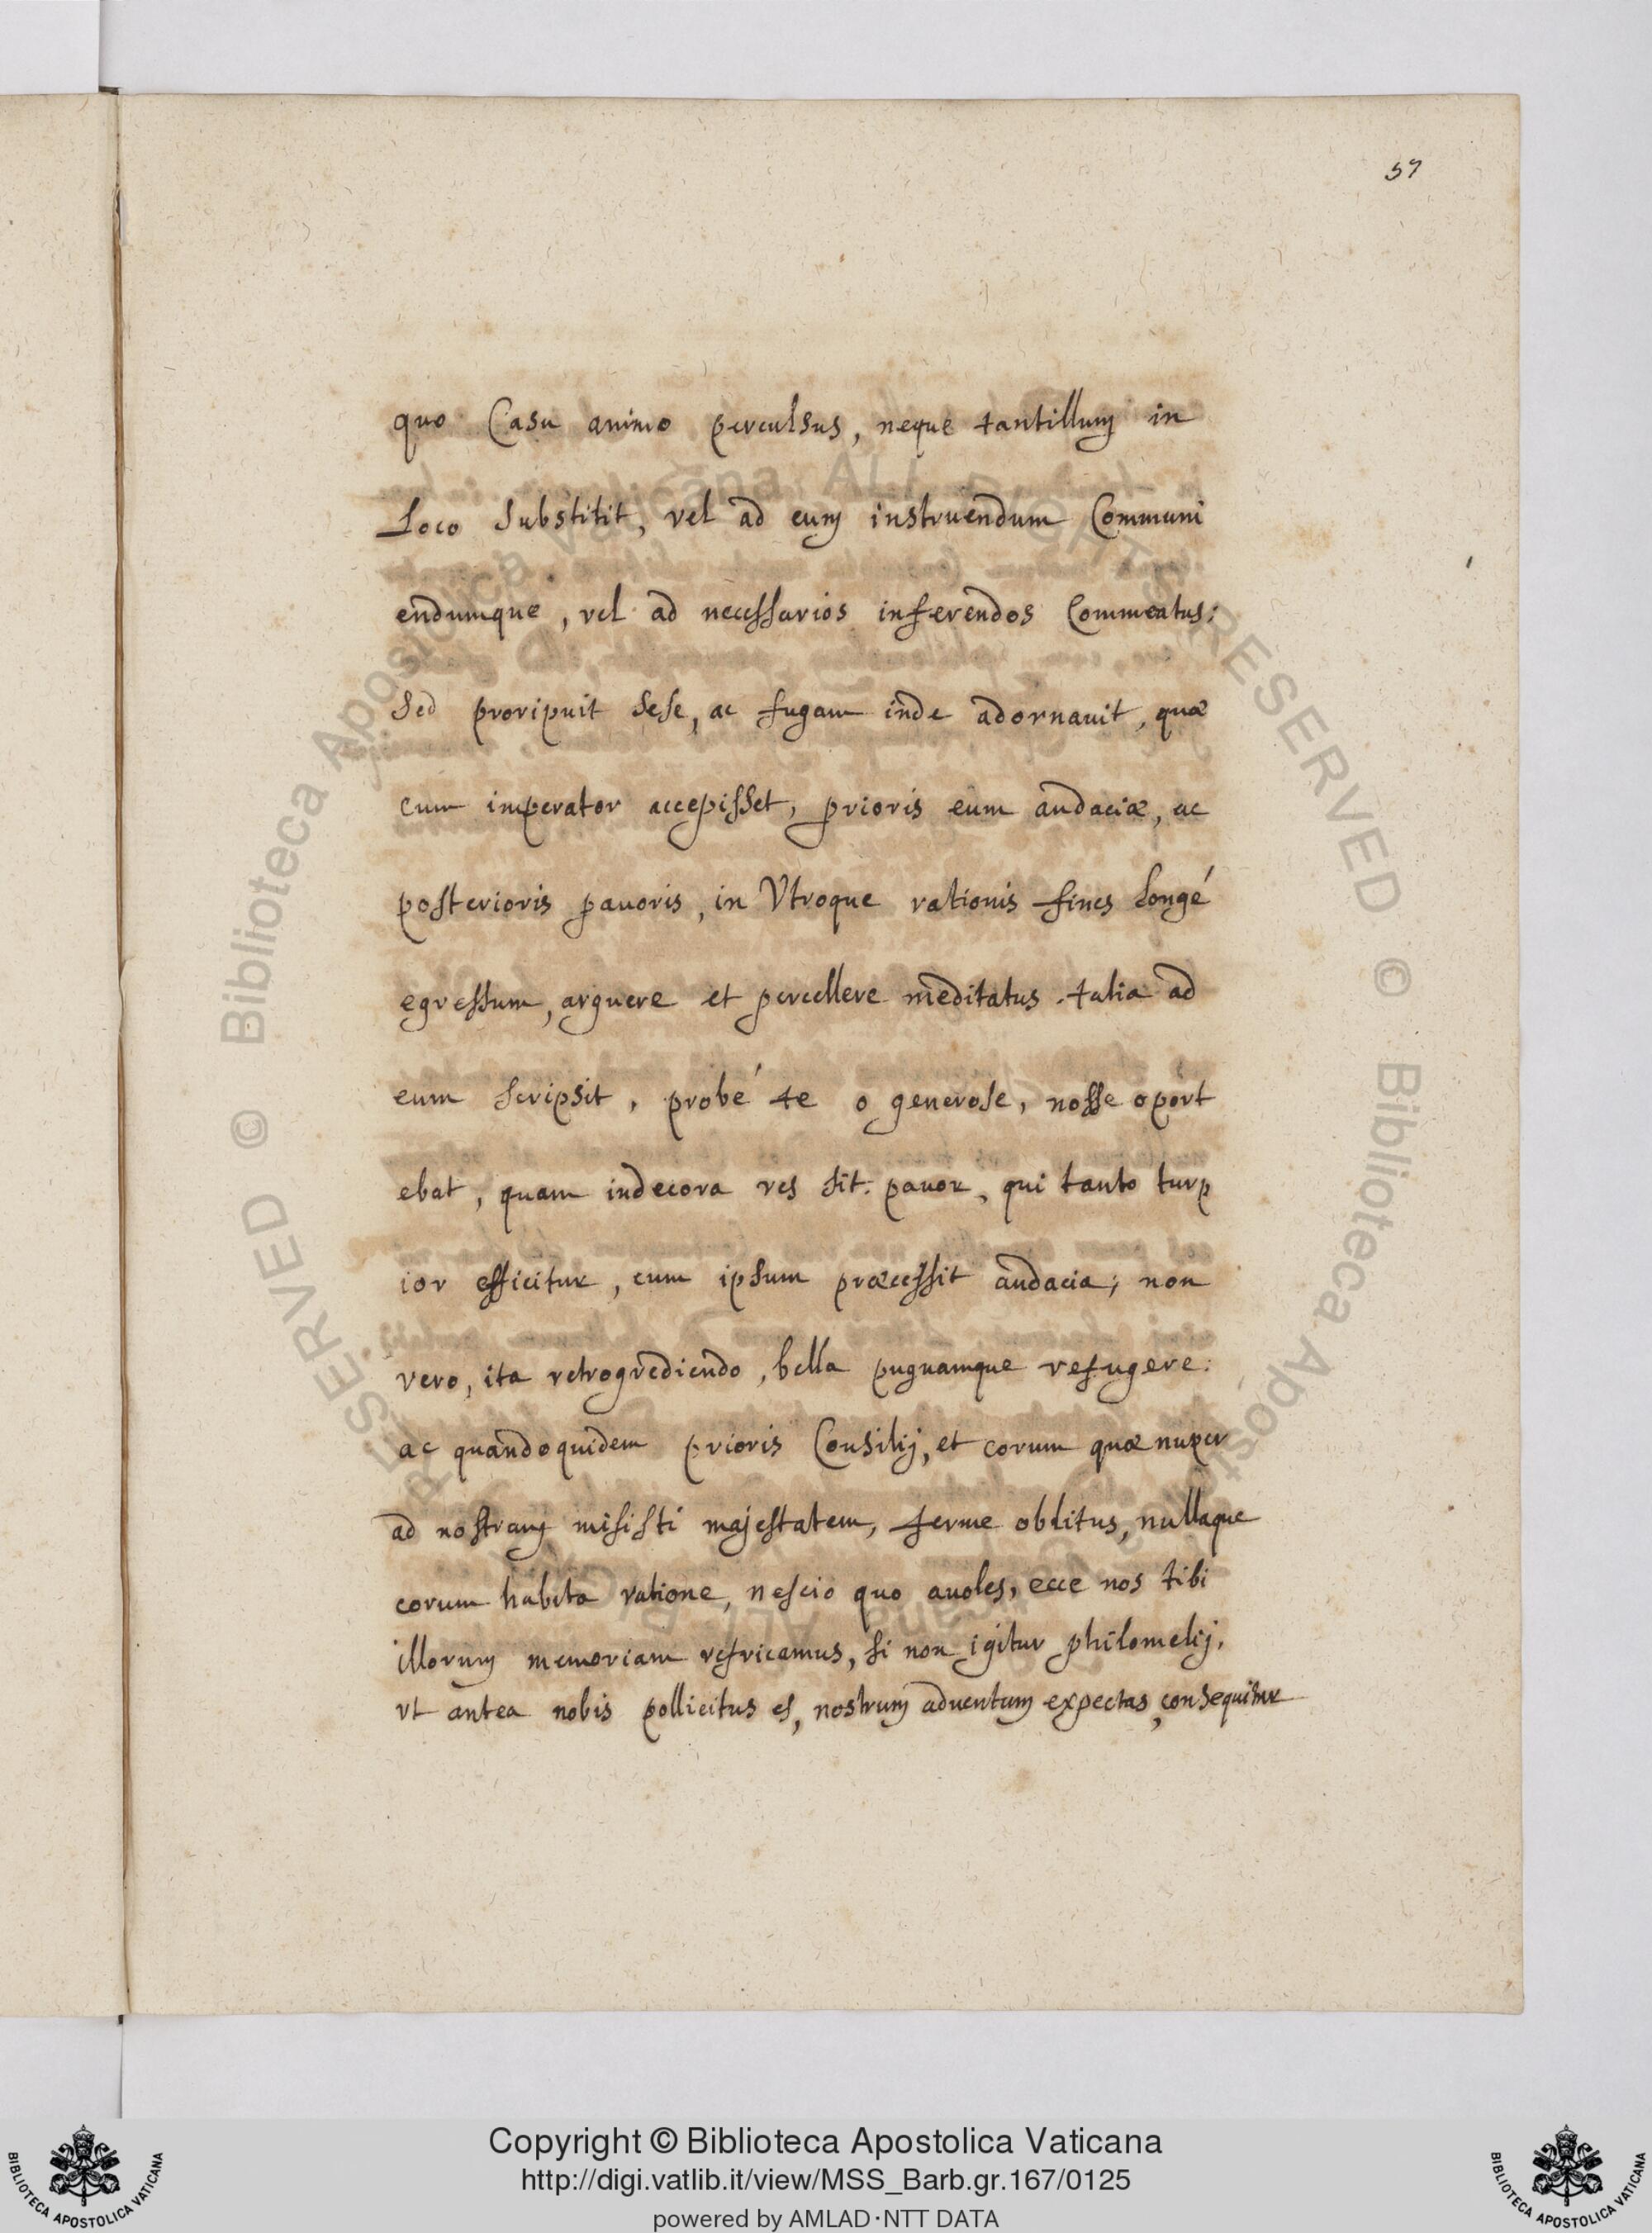 57
quo Casu animo perculsus, neque tantillum in
Loco Substitit, vel ad eum instruendum Communi
endumque, vel ad necessarios inferendos Commeatus;
Sed proripuit sese, ac fugam inde adornauit, quæ
cum imperator accepisset, prioris eum audaciæ, ac
posterioris pauoris, in Vtroque rationis fines Longé
egressum, arguere et percellere meditatus. talia ad
eum scripsit, probé te o generose, nosse oport
ebat, quam indecora res sit. pauor, qui tanto turp
ior efficitur, cum ipsum præcessit audacia; non
vero, ita retrogrediendo, bella pugnamque refugere:
ac quandoquidem prioris Consilij, et eorum quæ nuper
ad nostram misisti majestatem, ferme oblitus, nullaque
eorum habita ratione, nescio quo auoles, ecce nos tibi
illorum memoriam refricamus, si non igitur philomelij,
vt antea nobis pollicitus es, nostrum aduentum expectas, consequitur
© Biblioteca Apostolica Vaticana ALL RIGHTS RESERVED © Biblioteca Apostolica Vaticana ALL RIGHTS RESERVED
BIBLIOTECA APOSTOLICA VATICANA
Copyright © Biblioteca Apostolica Vaticana
http://digi.vatlib.it/view/MSS_Barb.gr.167/0125
powered by AMLAD·NTT DATA
BIBLIOTECA APOSTOLICA VATICANA